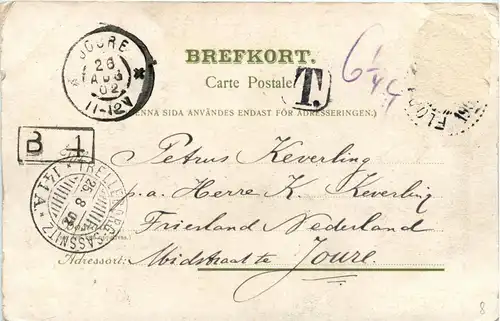 JOURE
26
AUG
02
11-12V
BREFKORT.
Carte Postale
T.
(DENNA SIDA ANVÄNDES ENDAST FÖR ADRESSERINGEN.)
B 1
TRELLEBORG-SASSNITZ
25 8 02
141 A
Petrus Keverling
p.a. Herre K. Keverling
Frierland Nederland
Adressort: Midstraat te Joure.
8